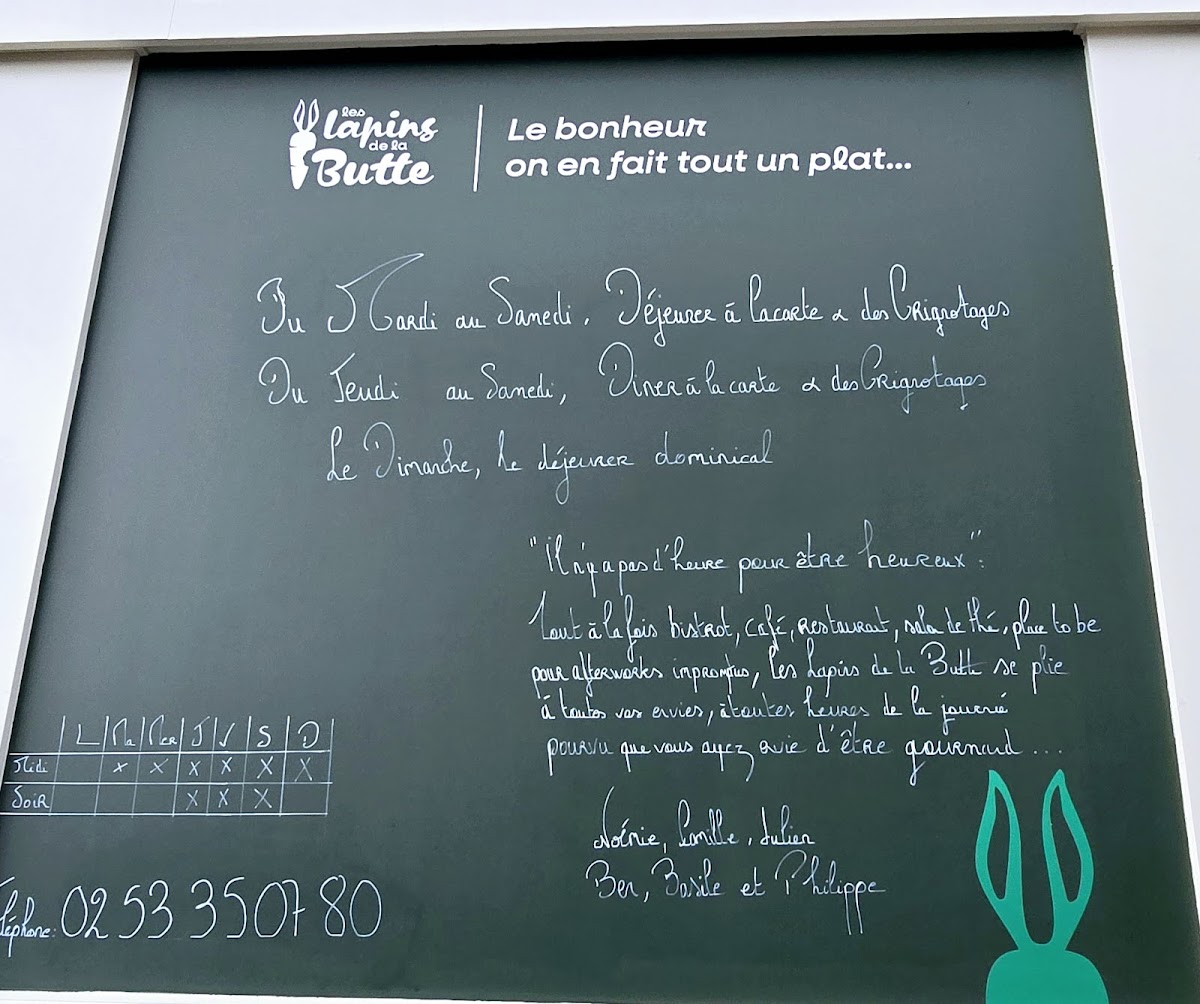 les
lapins
de la
Butte
Le bonheur
on en fait tout un plat...
Du Mardi au Samedi, Déjeuner à la carte & des Grignotages
Du Jeudi au Samedi, Diner à la carte & des Grignotages
Le Dimanche, le déjeuner dominical
"Il n'y a pas d'heure pour être heureux":
Tout à la fois bistrot, café, restaurant, salon de thé, place to be
pour afterworks impromptus, les Lapins de la Butte se plie
à toutes vos envies, à toutes heures de la journée
pourvu que vous ayez envie d'être gourmand...
Noémie, Camille, Julien
Ben, Basile et Philippe
L Ma Mer J V S D
Midi x x x x x x
Soir x x x
Téléphone: 02 53 35 07 80